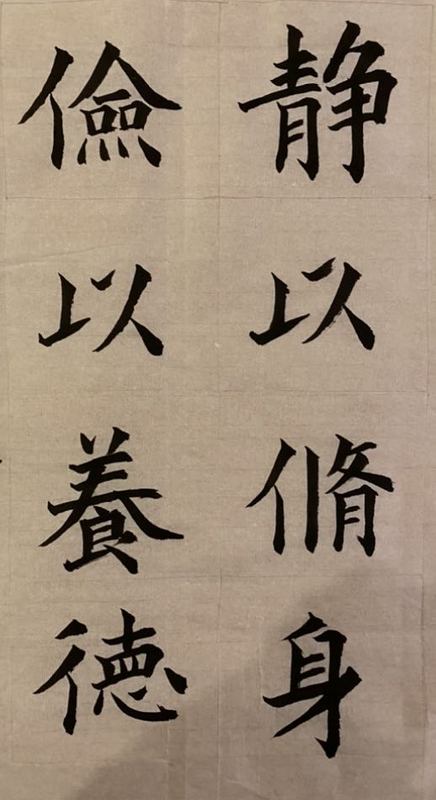 静以脩身
儉以養徳